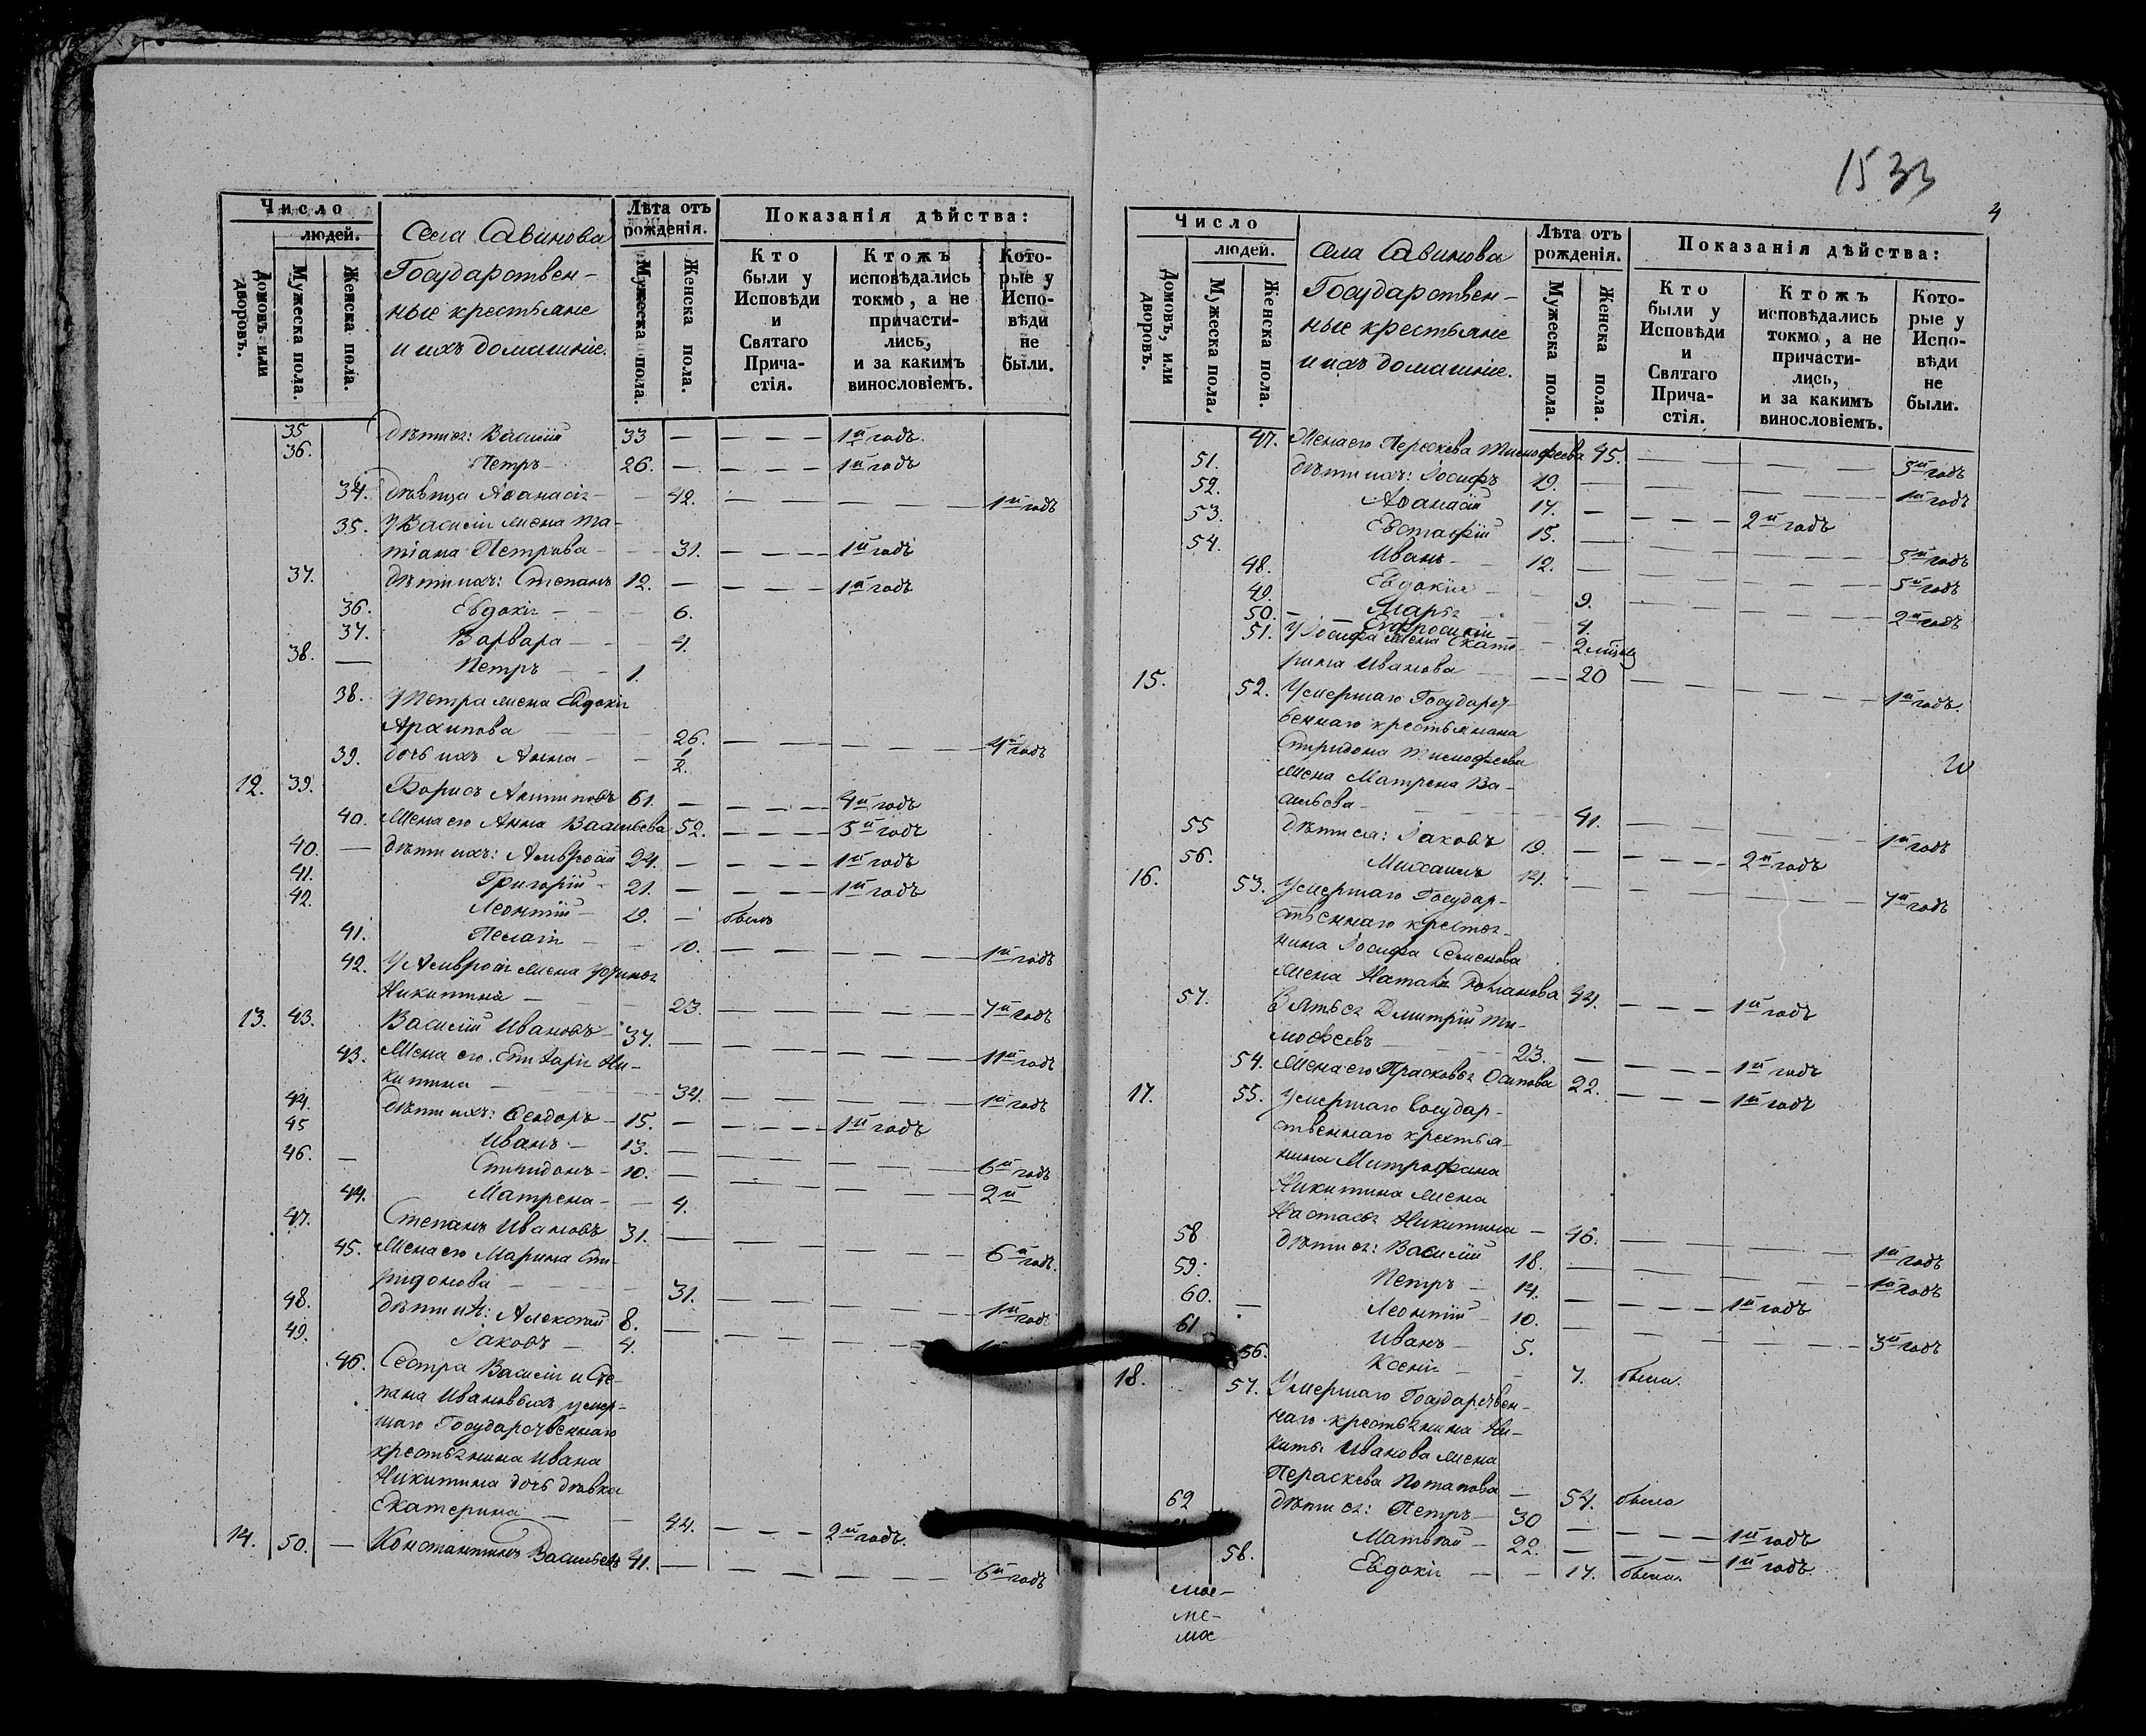 1533
4
Число
людей.
Домовъ или дворовъ.
Мужеска пола.
Женска пола.
Села Савинова
Государствен-
ные крестьяне
и ихъ домашніе.
Лѣта отъ рожденія.
Мужеска пола.
Женска пола.
Показанія дѣйства:
Кто были у Исповѣди и Святаго Прича- стія.
Ктожъ исповѣдались токмо, а не причасти- лись, и за какимъ винословіемъ.
Кото- рые у Испо- вѣди не были.
35 Василій 33 — — — — 1й годъ
36. Петръ 26. — — — — 1й годъ
34. дѣвица 42. — — — — 1й годъ
35. У Василія жена Та-
тіана Петрова — 31. — — — 1й годъ
37. дѣти ихъ: Степанъ 12. — — 1й годъ
36. Евдокія — — 6.
37. Варвара — — 4.
38. — Петръ — — 1.
38. У Петра жена Евдокія
Архипова — 26. — — — — годъ
39. дочь ихъ Анна — — 1/2.
12. 39. Борисъ Антиповъ 61. — — — — 4й годъ
40. Жена его Анна Васильева 52. — — — 3й годъ
40. — дѣти ихъ: Амвросій 24. — — — — 1й годъ
41. Григорій — 21. — — — — 1й годъ
42. Леонтій — 19. — былъ
41. Пелагія — — 10. — — — — 1й годъ
42. У Амвросія жена
Никитина — 23. — — — — 7й годъ
13. 43. Василій Ивановъ 37. — — — — годъ
43. Жена его Ни-
китина — 34. — — — — 1й годъ
44. дѣти ихъ: Ѳеодоръ — 15. — — — 1й годъ
45 Иванъ — 13. — — — — 6й годъ
46. — Спиридонъ — 10. — — — — 2й
44. Матрена — — 4.
47. Степанъ Ивановъ 31. — — — — 6й годъ.
45. Жена его Марина Спи-
ридонова — 31. — — — — 1й годъ
48. Алексѣй 8. — — — —
49. Іаковъ — 4.
46. Сестра Василія и Сте-
пана Ивановыхъ умер-
шаго Государственнаго
крестьянина Ивана
Никитина дочь дѣвка
Екатерина — — 44. — — — 2й годъ.
14. 50. — Константинъ Васильевъ 41. — — — — 6й годъ
Число
людей.
Домовъ, или дворовъ.
Мужеска пола.
Женска пола.
Села Савинова
Государствен-
ные крестьяне
и ихъ домашніе.
Лѣта отъ рожденія.
Мужеска пола.
Женска пола.
Показанія дѣйства:
Кто были у Исповѣди и Святаго Прича- стія.
Ктожъ исповѣдались токмо, а не причасти- лись, и за какимъ винословіемъ.
Кото- рые у Испо- вѣди не были.
47. Жена его Тимофеева 45. — — — 3й годъ
51. дѣти ихъ: Іосифъ 19. — — — — 1й годъ
52. Аѳанасій 17. — — — — 2й годъ
53. Евстафій 15. — — — — 3й годъ
54. Иванъ — 12. — — — — 5й годъ
48. Евдокія — 9. — — — — 2й годъ
49. Марья — 4.
50. — Евфросинія — 2
51. У Іосифа жена Екате-
рина Иванова — 20 — — — — 1й годъ.
15. 52. Умершаго Государст-
веннаго крестьянина
Спиридона Тимофеева
жена Матрена Ва-
сильева — 41. — — — 1й годъ
55 дѣти ея: Іаковъ 19. — — — — 2й годъ
56. Михаилъ 14. — — — — 7й годъ
16. 53. Умершаго Государ-
ственнаго крестья-
нина Іосифа Семенова
жена Романова 44. — — — 1й годъ
57. Зятья Дмитрій Ти-
мофеевъ — 23. — — — — 1й годъ
54. Жена его Прасковья Осипова 22. — — — 1й годъ
17. 55. Умершаго Государ-
ственнаго крестья-
нина Митрофана
Никитина жена
Настасья Никитина — 46. — — — — 1й годъ
58 Василій 18. — — — — 1й годъ
59. Петръ — 14. — — — — 1й годъ
60. — Леонтій — 10. — — — — 3й годъ
61 Иванъ — 5.
56. Ксенія — — 7. была.
18. 57. Умершаго Государствен-
наго крестьянина Ни-
киты Иванова жена
Параскева Потапова — 54. была
62 Петръ — 30 — — — — 1й годъ
Матвѣй — 22. — — — — 1й годъ.
58. Евдокія — — 17. была.